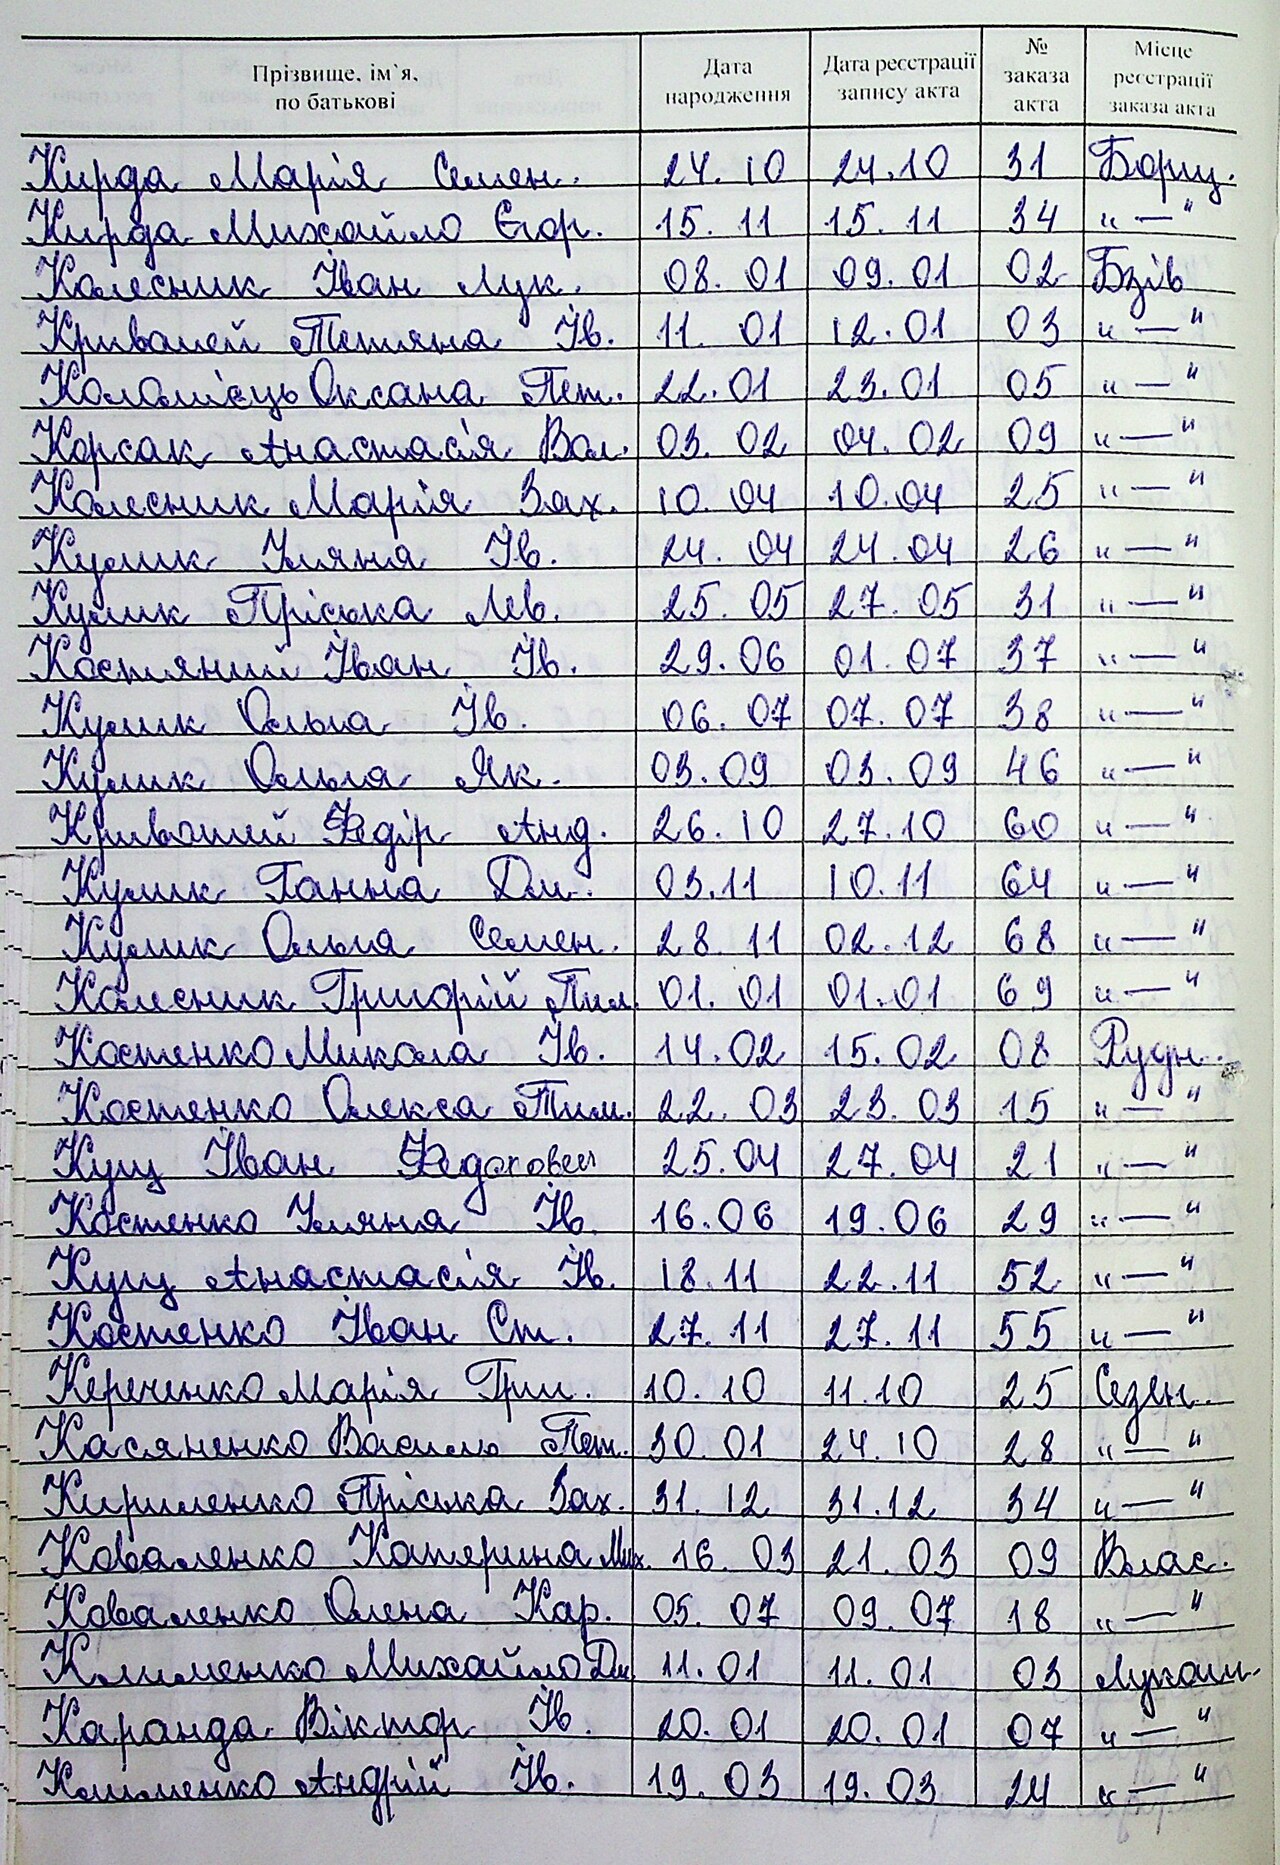 Прізвище, ім`я, по батькові | Дата народження | Дата реєстрації запису акта | № заказа акта | Місце реєстрації заказа акта
Кирда Марія Семен. 24.10 24.10 31 Борщ.
Кирда Михайло Єгор. 15.11 15.11 34 "—"
Колесник Іван Лук. 08.01 09.01 02 Бзів
Кривошей Тетяна Ів. 11.01 12.01 03 "—"
Коломієць Оксана Пет. 22.01 23.01 05 "—"
Корсак Анастасія Вал. 03.02 04.02 09 "—"
Колесник Марія Зах. 10.04 10.04 25 "—"
Кулик Уляна Ів. 24.04 24.04 26 "—"
Кулик Пріська Лев. 25.05 27.05 31 "—"
Костяний Іван Ів. 29.06 01.07 37 "—"
Кулик Ольга Ів. 06.07 07.07 38 "—"
Кулик Ольга Як. 03.09 03.09 46 "—"
Кривоший Федір Анд. 26.10 27.10 60 "—"
Кулик Ганна Дм. 03.11 10.11 64 "—"
Кулик Ольга Семен. 28.11 02.12 68 "—"
Колесник Григорій Пил. 01.01 01.01 69 "—"
Костенко Микола Ів. 14.02 15.02 08 Рудн.
Костенко Олекса Тим. 22.03 23.03 15 "—"
Кущ Іван Федорович 25.04 27.04 21 "—"
Костенко Уляна Ів. 16.06 19.06 29 "—"
Кущ Анастасія Ів. 18.11 22.11 52 "—"
Костенко Іван Ст. 27.11 27.11 55 "—"
Кереченко Марія Григ. 10.10 11.10 25 Сезен.
Касяненко Василь Пет. 30.01 24.10 28 "—"
Кириленко Пріська Зах. 31.12 31.12 34 "—"
Коваленко Катерина Мих. 16.03 21.03 09 Влас.
Коваленко Олена Кар. 05.07 09.07 18 "—"
Клименко Михайло Дм. 11.01 11.01 03 Лукаш.
Каранда Віктор Ів. 20.01 20.01 07 "—"
Клименко Андрій Ів. 19.03 19.03 24 "—"